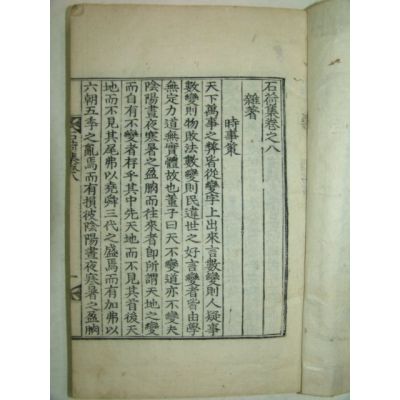 石荷集卷之八
雜著
時事策
天下萬事之弊皆從變字上出來言數變則人疑事
數變則物敗法數變則民違世之好言變者皆由學
無定力道無實體故也董子曰天不變道亦不變夫
陰陽晝夜寒暑之盈朒而往來者卽所謂天地之變
而自有不變者存乎其中先天地而不見其首後天
地而不見其尾弗以堯舜三代之盛焉而有加弗以
六朝五季之亂焉而有損彼陰陽晝夜寒暑之盈朒
石荷集卷八
一